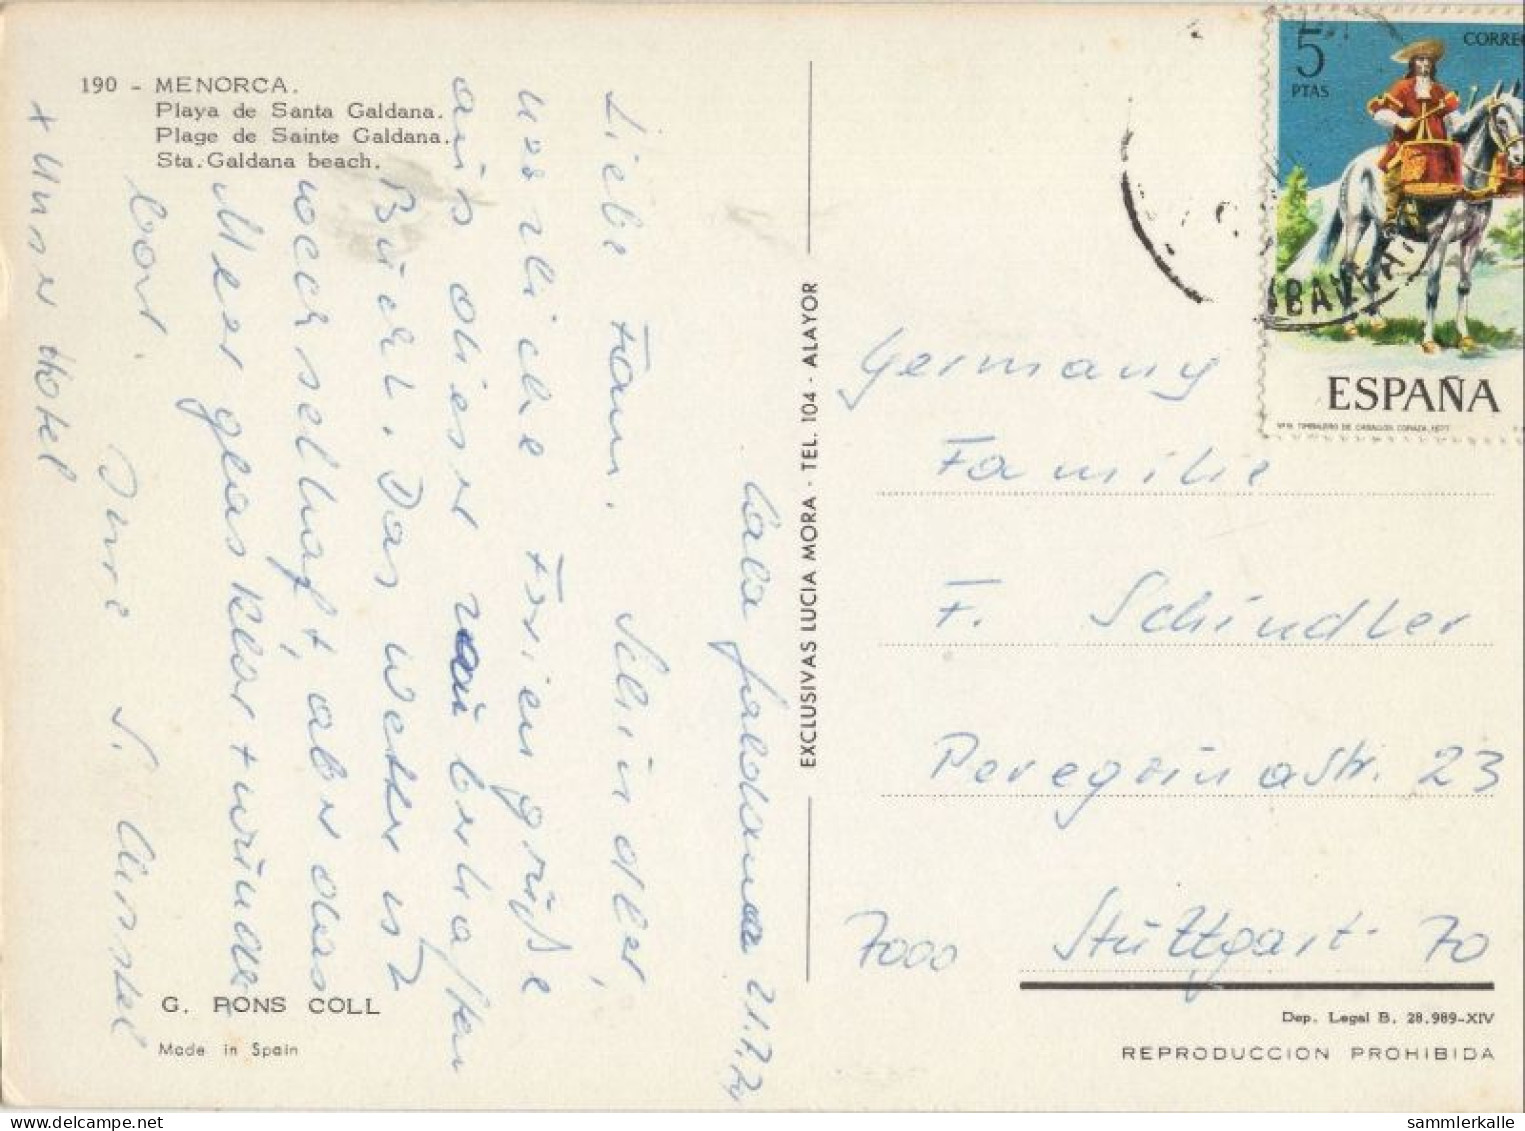 190 - MENORCA.
Playa de Santa Galdana.
Plage de Sainte Galdana.
Sta. Galdana beach.
x Unser Hotel
21.7.
Liebe Fam. Schindler,
herzliche Feriengrüße
aus dieser zauberhaften
Bucht. Das Wetter ist
wechselhaft, aber das
Meer glasklar + wunder
bar.
Ihre
G. PONS COLL
Made in Spain
EXCLUSIVAS LUCIA MORA - TEL. 104 - ALAYOR
5
PTAS
CORREO
ESPAÑA
Nº 19. TIMBALERO DE CABALLOS CORAZA, 1677
Germany
Familie
F. Schindler
Peregrinastr. 23
7000 Stuttgart 70
Dep. Legal B. 28.989-XIV
REPRODUCCION PROHIBIDA
sammlerkalle